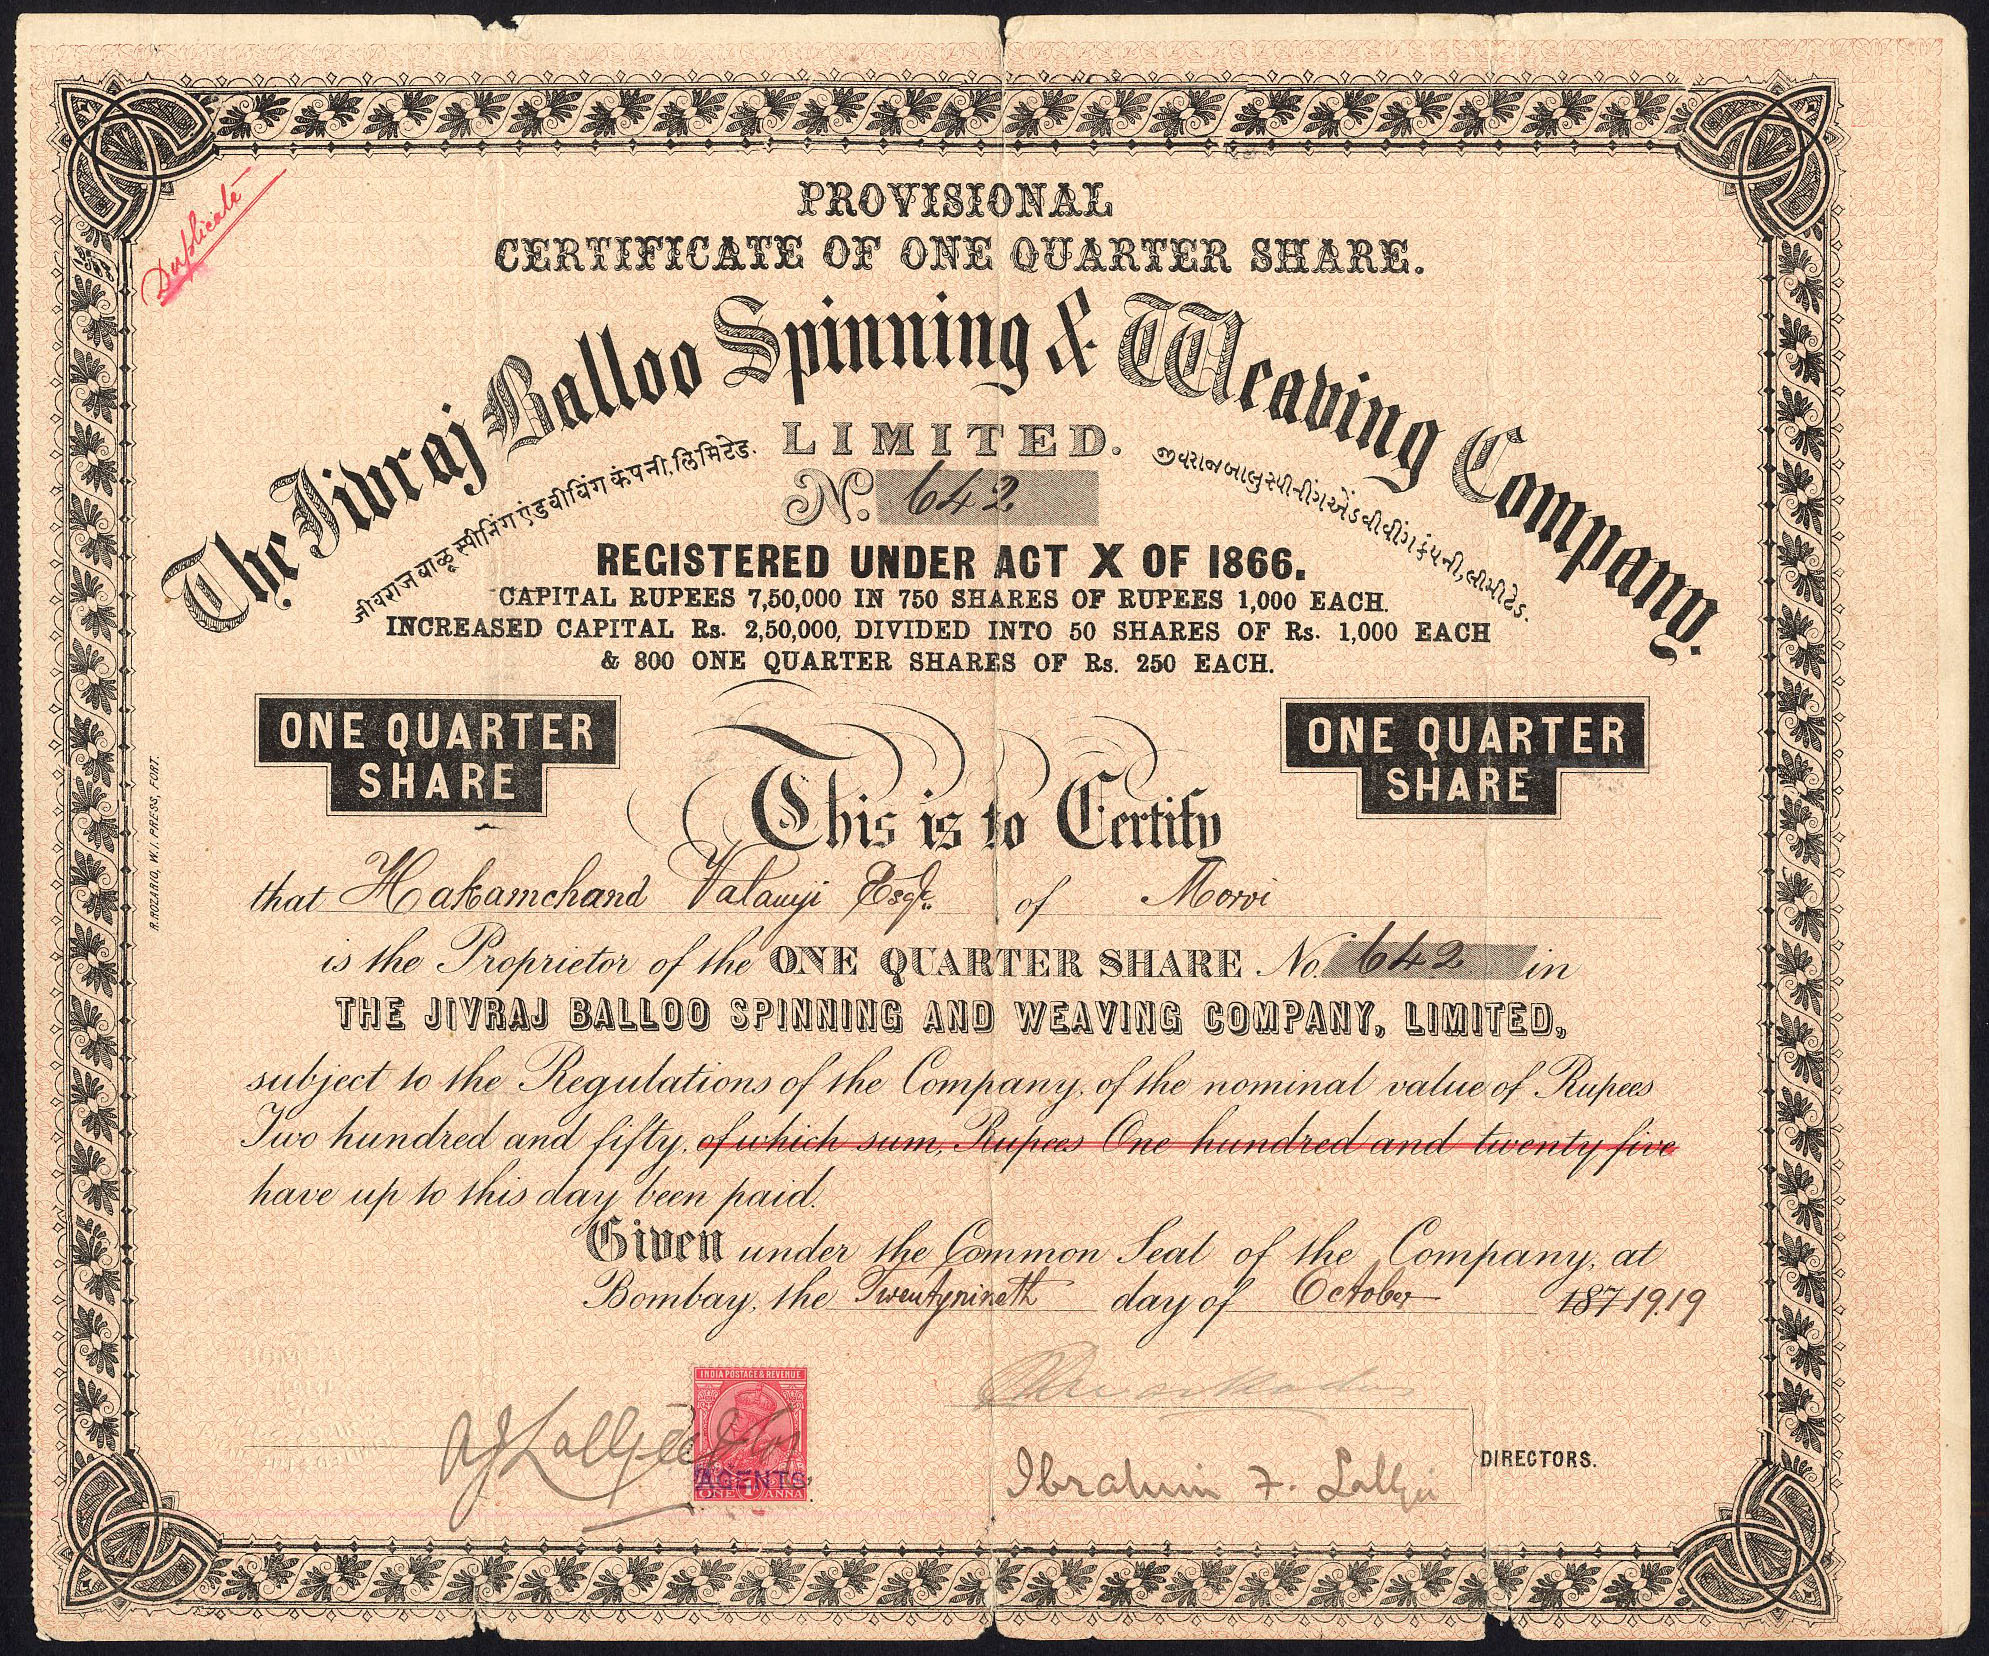 Duplicate
PROVISIONAL
CERTIFICATE OF ONE QUARTER SHARE.
The Jivraj Balloo Spinning & Weaving Company.
LIMITED.
जीवराज बाळू स्पीनिंग एंड वीविंग कंपनी, लिमिटेड.
જીવરાજ બાલુ સ્પીનીંગ એંડ વીવીંગ કંપની, લીમીટેડ.
No. 642
REGISTERED UNDER ACT X OF 1866.
CAPITAL RUPEES 7,50,000 IN 750 SHARES OF RUPEES 1,000 EACH.
INCREASED CAPITAL Rs. 2,50,000, DIVIDED INTO 50 SHARES OF Rs. 1,000 EACH
& 800 ONE QUARTER SHARES OF Rs. 250 EACH.
ONE QUARTER
SHARE
ONE QUARTER
SHARE
This is to Certify
that Hakamchand Valamji Esqr. of Morvi
is the Proprietor of the ONE QUARTER SHARE No. 642 in
THE JIVRAJ BALLOO SPINNING AND WEAVING COMPANY, LIMITED,
subject to the Regulations of the Company, of the nominal value of Rupees
Two hundred and fifty, of which sum, Rupees One hundred and twenty five
have up to this day been paid.
Given under the Common Seal of the Company, at
Bombay, the Twentynineth day of October 187 1919
R. ROZARIO, W. I. PRESS, FORT.
INDIA POSTAGE & REVENUE
AGENTS
ONE 1 ANNA
DIRECTORS.
Ibrahim F.